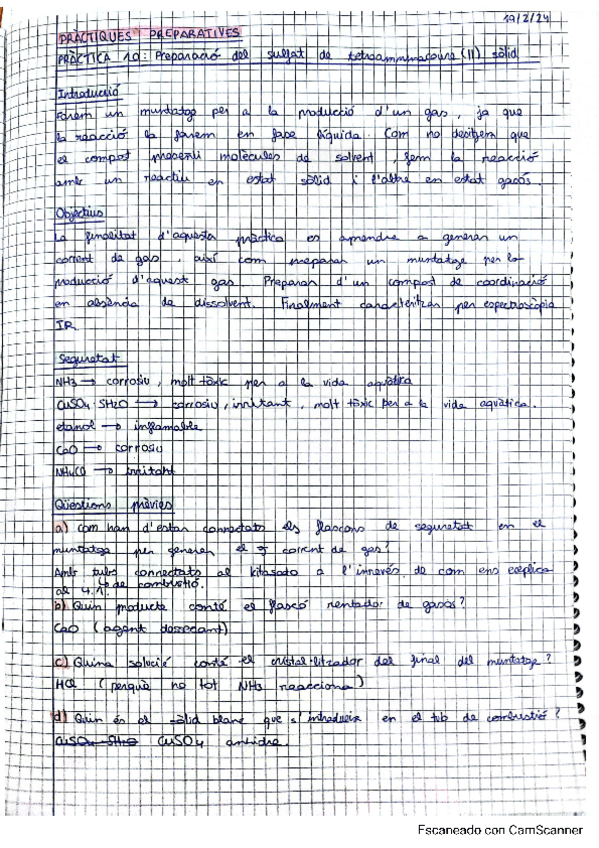 19/2/24
PRÀCTIQUES PREPARATIVES
PRÀCTICA 10: Preparació del sulfat de tetraamminacoure (II) sòlid
Introducció
Farem un muntatge per a la producció d'un gas, ja que
la reacció la farem en fase líquida. Com no desitgem que
el compost presenti molècules de solvent, fem la reacció
amb un reactiu en estat sòlid i l'altre en estat gasós.
Objectius
La finalitat d'aquesta pràctica es aprendre a generar un
corrent de gas, així com preparar un muntatge per la
producció d'aquest gas. Preparar d'un compost de coordinació
en absència de dissolvent. Finalment caracteritzar per espectroscòpia
IR
Seguretat
NH3 → corrosiu, molt tòxic per a la vida aquàtica
CuSO4·5H2O → corrosiu, irritant, molt tòxic per a la vida aquàtica.
etanol → inflamable
CaO → corrosiu
NH4Cl → irritant
Qüestions prèvies
a) Com han d'estar connectats els flascons de seguretat en el
muntatge per generar el corrent de gas?
Amb tubs connectats al kitasado a l'inrevés de com ens explica
al 4.1. de combustió.
b) Quin producte conté el flascó rentador de gasos?
CaO (agent dessecant)
c) Quina solució conté el cristal·litzador del final del muntatge?
HCl (perquè no tot NH3 reacciona)
d) Quin és el sòlid blanc que s'introdueix en el tub de combustió?
CuSO4·5H2O CuSO4 anhidre.
Escaneado con CamScanner